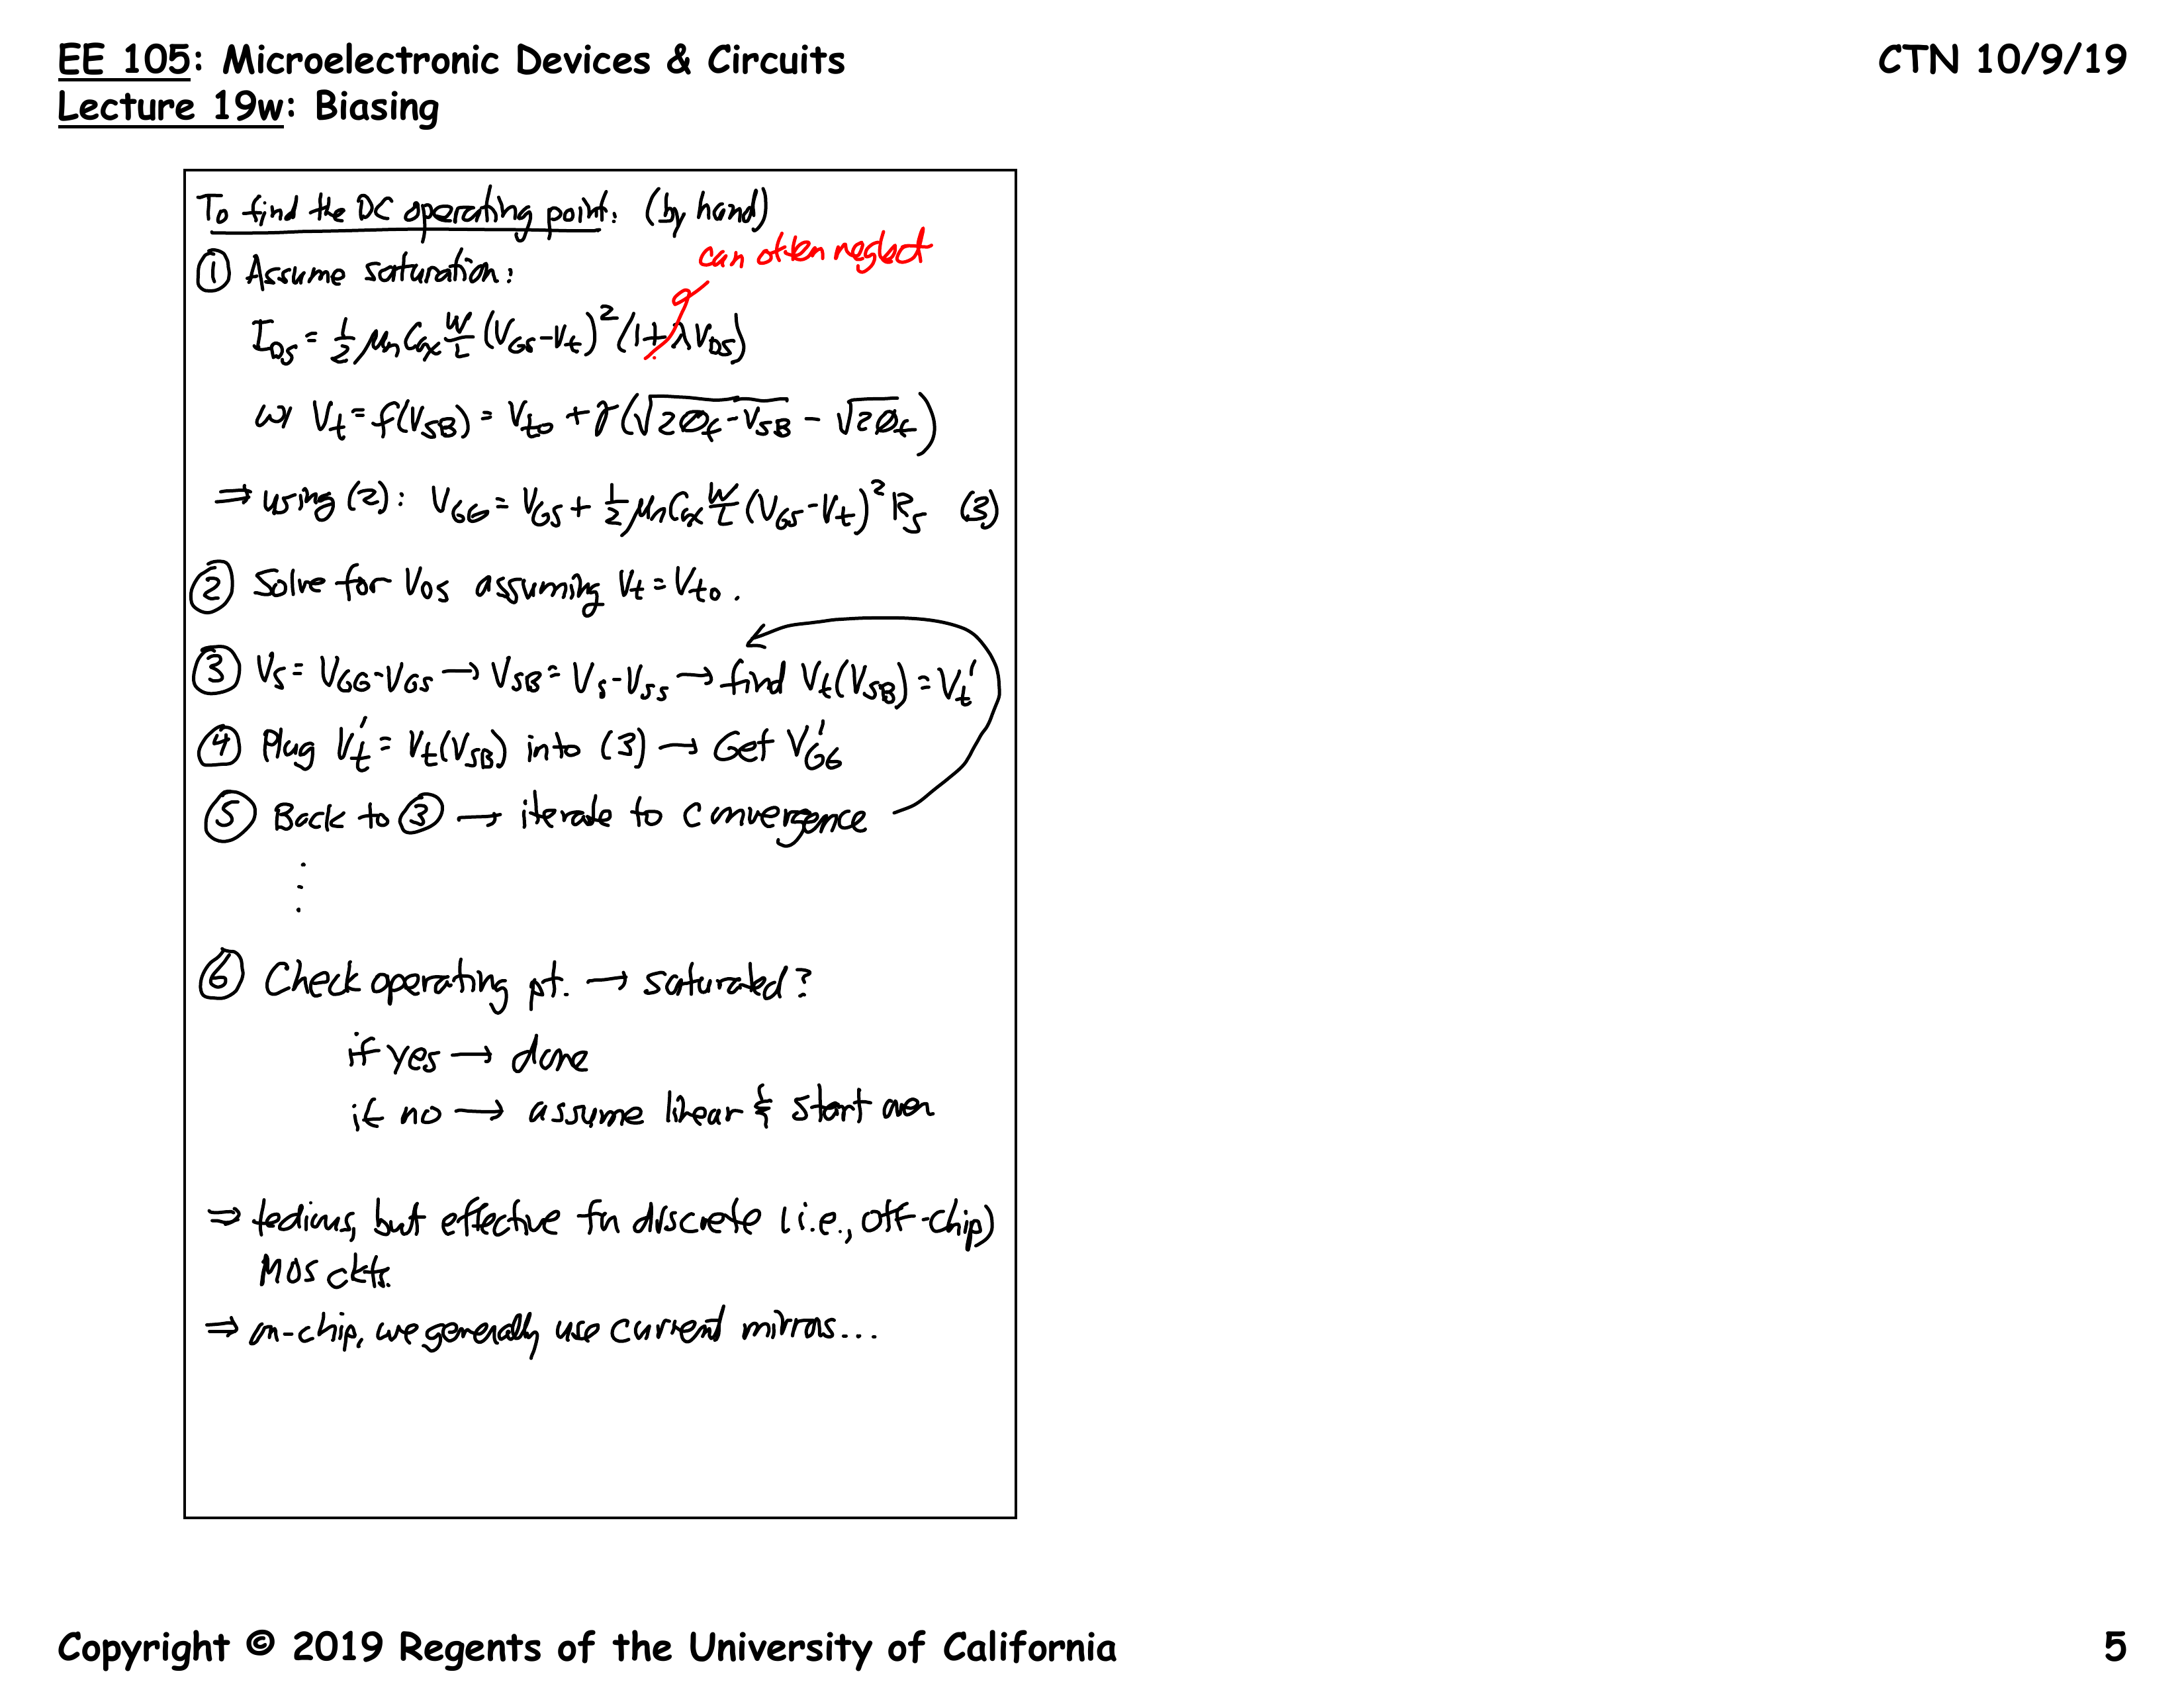 EE 105: Microelectronic Devices & Circuits
CTN 10/9/19
Lecture 19w: Biasing
To find the DC operating point: (by hand)
can often neglect
① Assume saturation:
I_DS = 1/2 μnCox W/L (V_GS - V_t)² (1 + λV_DS)
w/ V_t = f(V_SB) = V_to + γ(√2Ø_f - V_SB - √2Ø_f)
⇒ using (2): V_GG = V_GS + 1/2 μnCox W/L (V_GS - V_t)² R_S (3)
② Solve for V_GS assuming V_t = V_to.
③ V_S = V_GG - V_GS → V_SB = V_S - V_SS → find V_t(V_SB) = V_t'
④ Plug V_t' = V_t(V_SB) into (3) → Get V_GG'
⑤ Back to ③ → iterate to convergence
⑥ Check operating pt. → saturated?
if yes → done
if no → assume linear & start over
⇒ tedious, but effective for discrete (i.e., off-chip)
MOS ckts.
⇒ on-chip, we generally use current mirrors...
Copyright © 2019 Regents of the University of California
5